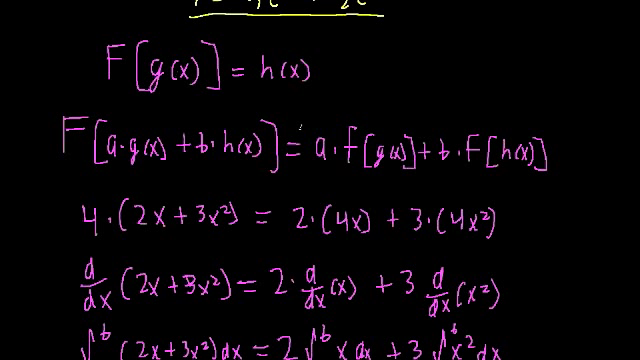 F[g(x)] = h(x)
F[a·g(x) + b·h(x)] = a·f[g(x)] + b·F[h(x)]
4·(2x + 3x²) = 2·(4x) + 3·(4x²)
d/dx (2x + 3x²) = 2·d/dx (x) + 3 d/dx (x²)
∫ᵇ (2x + 3x²)dx = 2∫ᵇ x dx + 3∫ᵇ x² dx